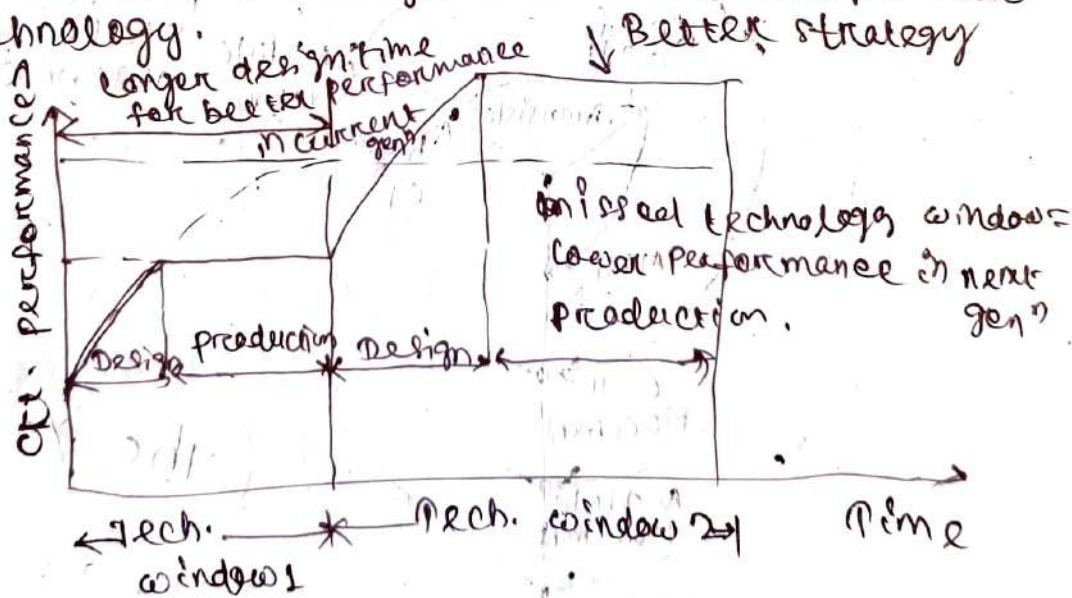 hnology.
Better strategy
longer design time
for better performance
in current
genn.
Ckt. performance
missed technology window=
lower performance in next
production. genn
Design
production
Design
Tech.
window 1
Tech. window 2
Time